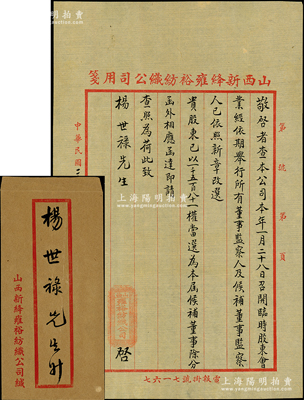 山西新絳雍裕紡織公司用箋
第 號 第 頁
敬啓者查本公司本年一月二十八日召開臨時股東會
業經依期舉行所有董事監察人及候補董事監察
人已依照新章改選
貴股東已以一千五百八十一權當選為本屆候補董事除分
函外相應函達即請
查照為荷此致
楊世祿先生
啓
中華民國二
電報掛號七一六七
楊世祿先生升
山西新絳雍裕紡織公司緘
上海陽明拍賣有限公司